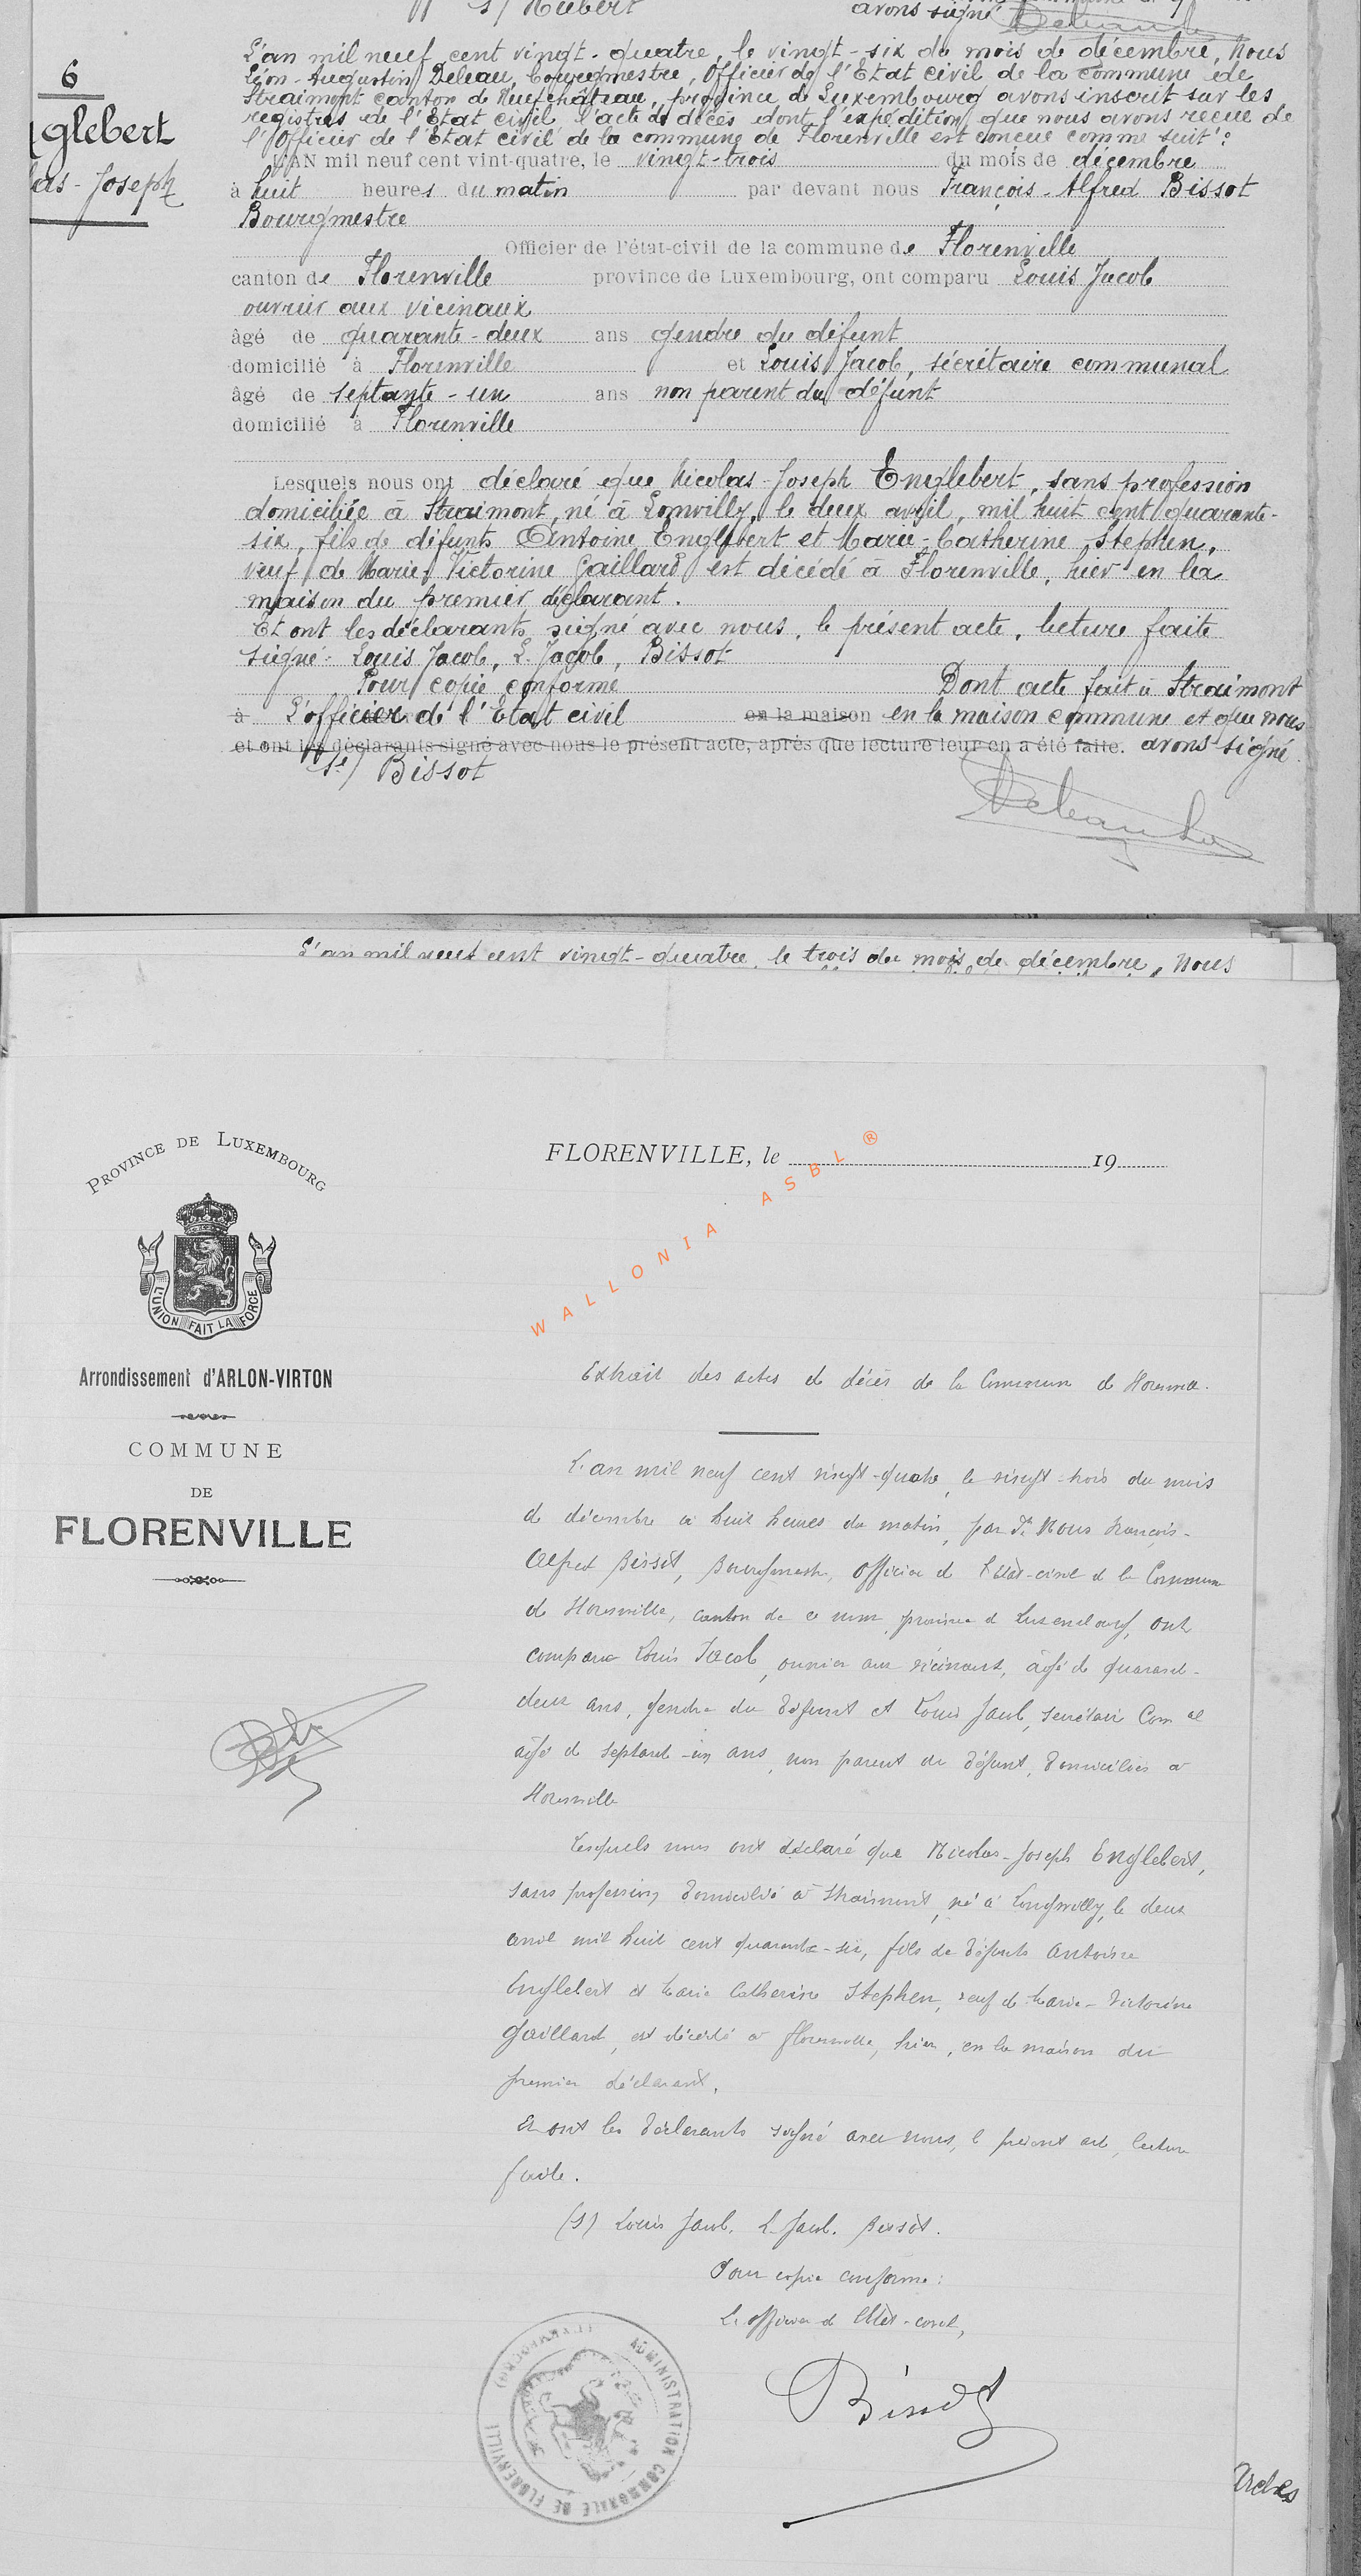 s/ Hubert
avons signé
L'an mil neuf cent vingt-quatre, le vingt-six du mois de décembre, Nous
Léon-Augustin Deleau, bourgmestre, Officier de l'Etat civil de la commune de
Straimont canton de Neufchâteau, province de Luxembourg avons inscrit sur les
registres de l'état civil l'acte de décès dont l'expédition que nous avons reçue de
l'Officier de l'Etat civil de la commune de Florenville est conçue comme suit :
6
glebert
las-Joseph
L'AN mil neuf cent vint-quatre, le vingt-trois du mois de décembre
à huit heures du matin par devant nous François-Alfred Bissot
Bourgmestre
Officier de l'état-civil de la commune de Florenville
canton de Florenville province de Luxembourg, ont comparu Louis Jacob
ouvrier aux vicinaux
âgé de quarante-deux ans gendre du défunt
domicilié à Florenville et Louis Jacob, sécrétaire communal
âgé de septante-un ans non parent du défunt
domicilié à Florenville
Lesquels nous ont déclaré que Nicolas-Joseph Englebert, sans profession
domiciliée à Straimont, né à Lonvilly, le deux avril, mil huit cent quarante-
six, fils de défunts Antoine Englebert et Marie-Catherine Stephen,
veuf de Marie-Victorine Gaillard est décédé à Florenville, hier en la
maison du premier déclarant.
Et ont les déclarants signé avec nous, le présent acte, lecture faite
signé: Louis Jacob, L. Jacob, Bissot
Pour copie conforme Dont acte fait à Straimont
à L'officier de l'Etat civil en la maison en la maison commune et que nous
et ont les déclarants signé avec nous le présent acte, après que lecture leur en a été faite. avons signé.
(s/) Bissot
L'an mil neuf cent vingt-quatre, le trois du mois de décembre, Nous
PROVINCE DE LUXEMBOURG
L'UNION FAIT LA FORCE
Arrondissement d'ARLON-VIRTON
COMMUNE
DE
FLORENVILLE
FLORENVILLE, le 19
WALLONIA ASBL ®
Extrait des actes de décès de la Commune de Florenville.
L'an mil neuf cent vingt-quatre, le vingt-trois du mois
de décembre à huit heures du matin, par dt Nous François-
Alfred Bissot, Bourgmestre, officier de l'état-civil de la Commune
de Florenville, canton de ce nom, province de Luxembourg, ont
comparu Louis Jacob, ouvrier aux vicinaux, âgé de quarante-
deux ans, gendre du défunt et Louis Jacob, secrétaire Com al
âgé de septante-un ans, non parent du défunt, domiciliés à
Florenville
Lesquels nous ont déclaré que Nicolas-Joseph Englebert,
sans profession, domicilié à Straimont, né à Longvilly, le deux
avril mil huit cent quarante-six, fils de défunts Antoine
Englebert et Marie Catherine Stephen, veuf de Marie-Victorine
Gaillard, est décédé à Florenville, hier, en la maison du
premier déclarant.
Et ont les déclarants signé avec nous, le présent acte, lecture
faite.
(S) Louis Jacob. L. Jacob. Bissot.
Pour copie conforme :
L'officier de l'Etat-civil,
Bissot
ADMINISTRATION COMMUNALE DE FLORENVILLE (LUXEMBOURG)